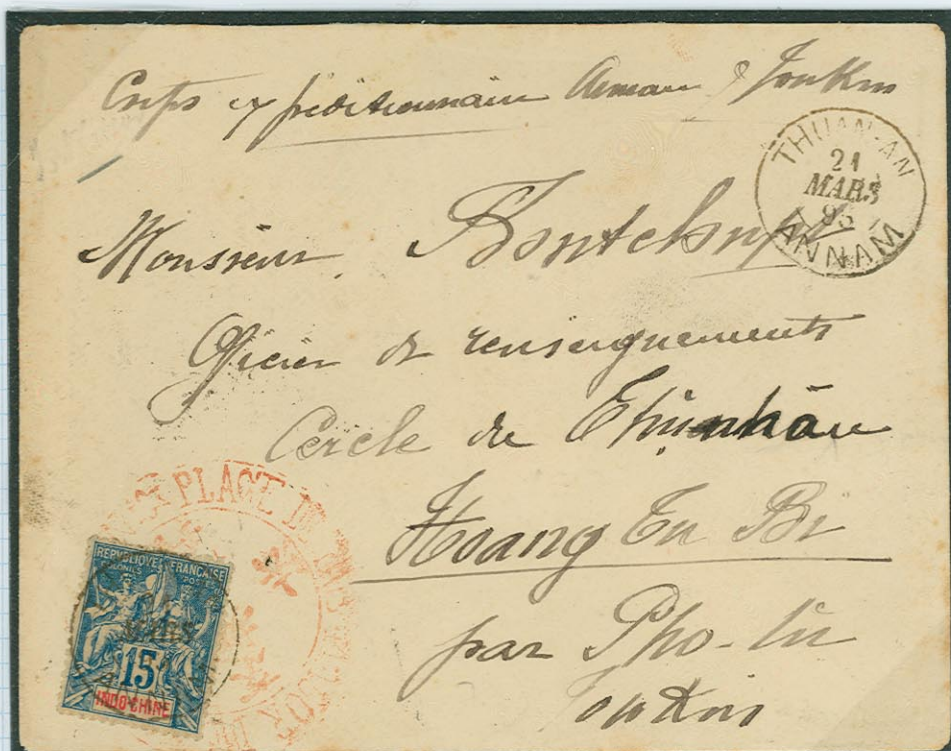 Corps expéditionnaire Annam & Tonkin
THUAN-AN
21
MARS
ANNAM
Monsieur
Officier de renseignements
Cercle de
Hoang Su Bi
par Pho-lu
PLACE
REPUBLIQUE FRANCAISE
COLONIES POSTES
MARS
15
INDO-CHINE